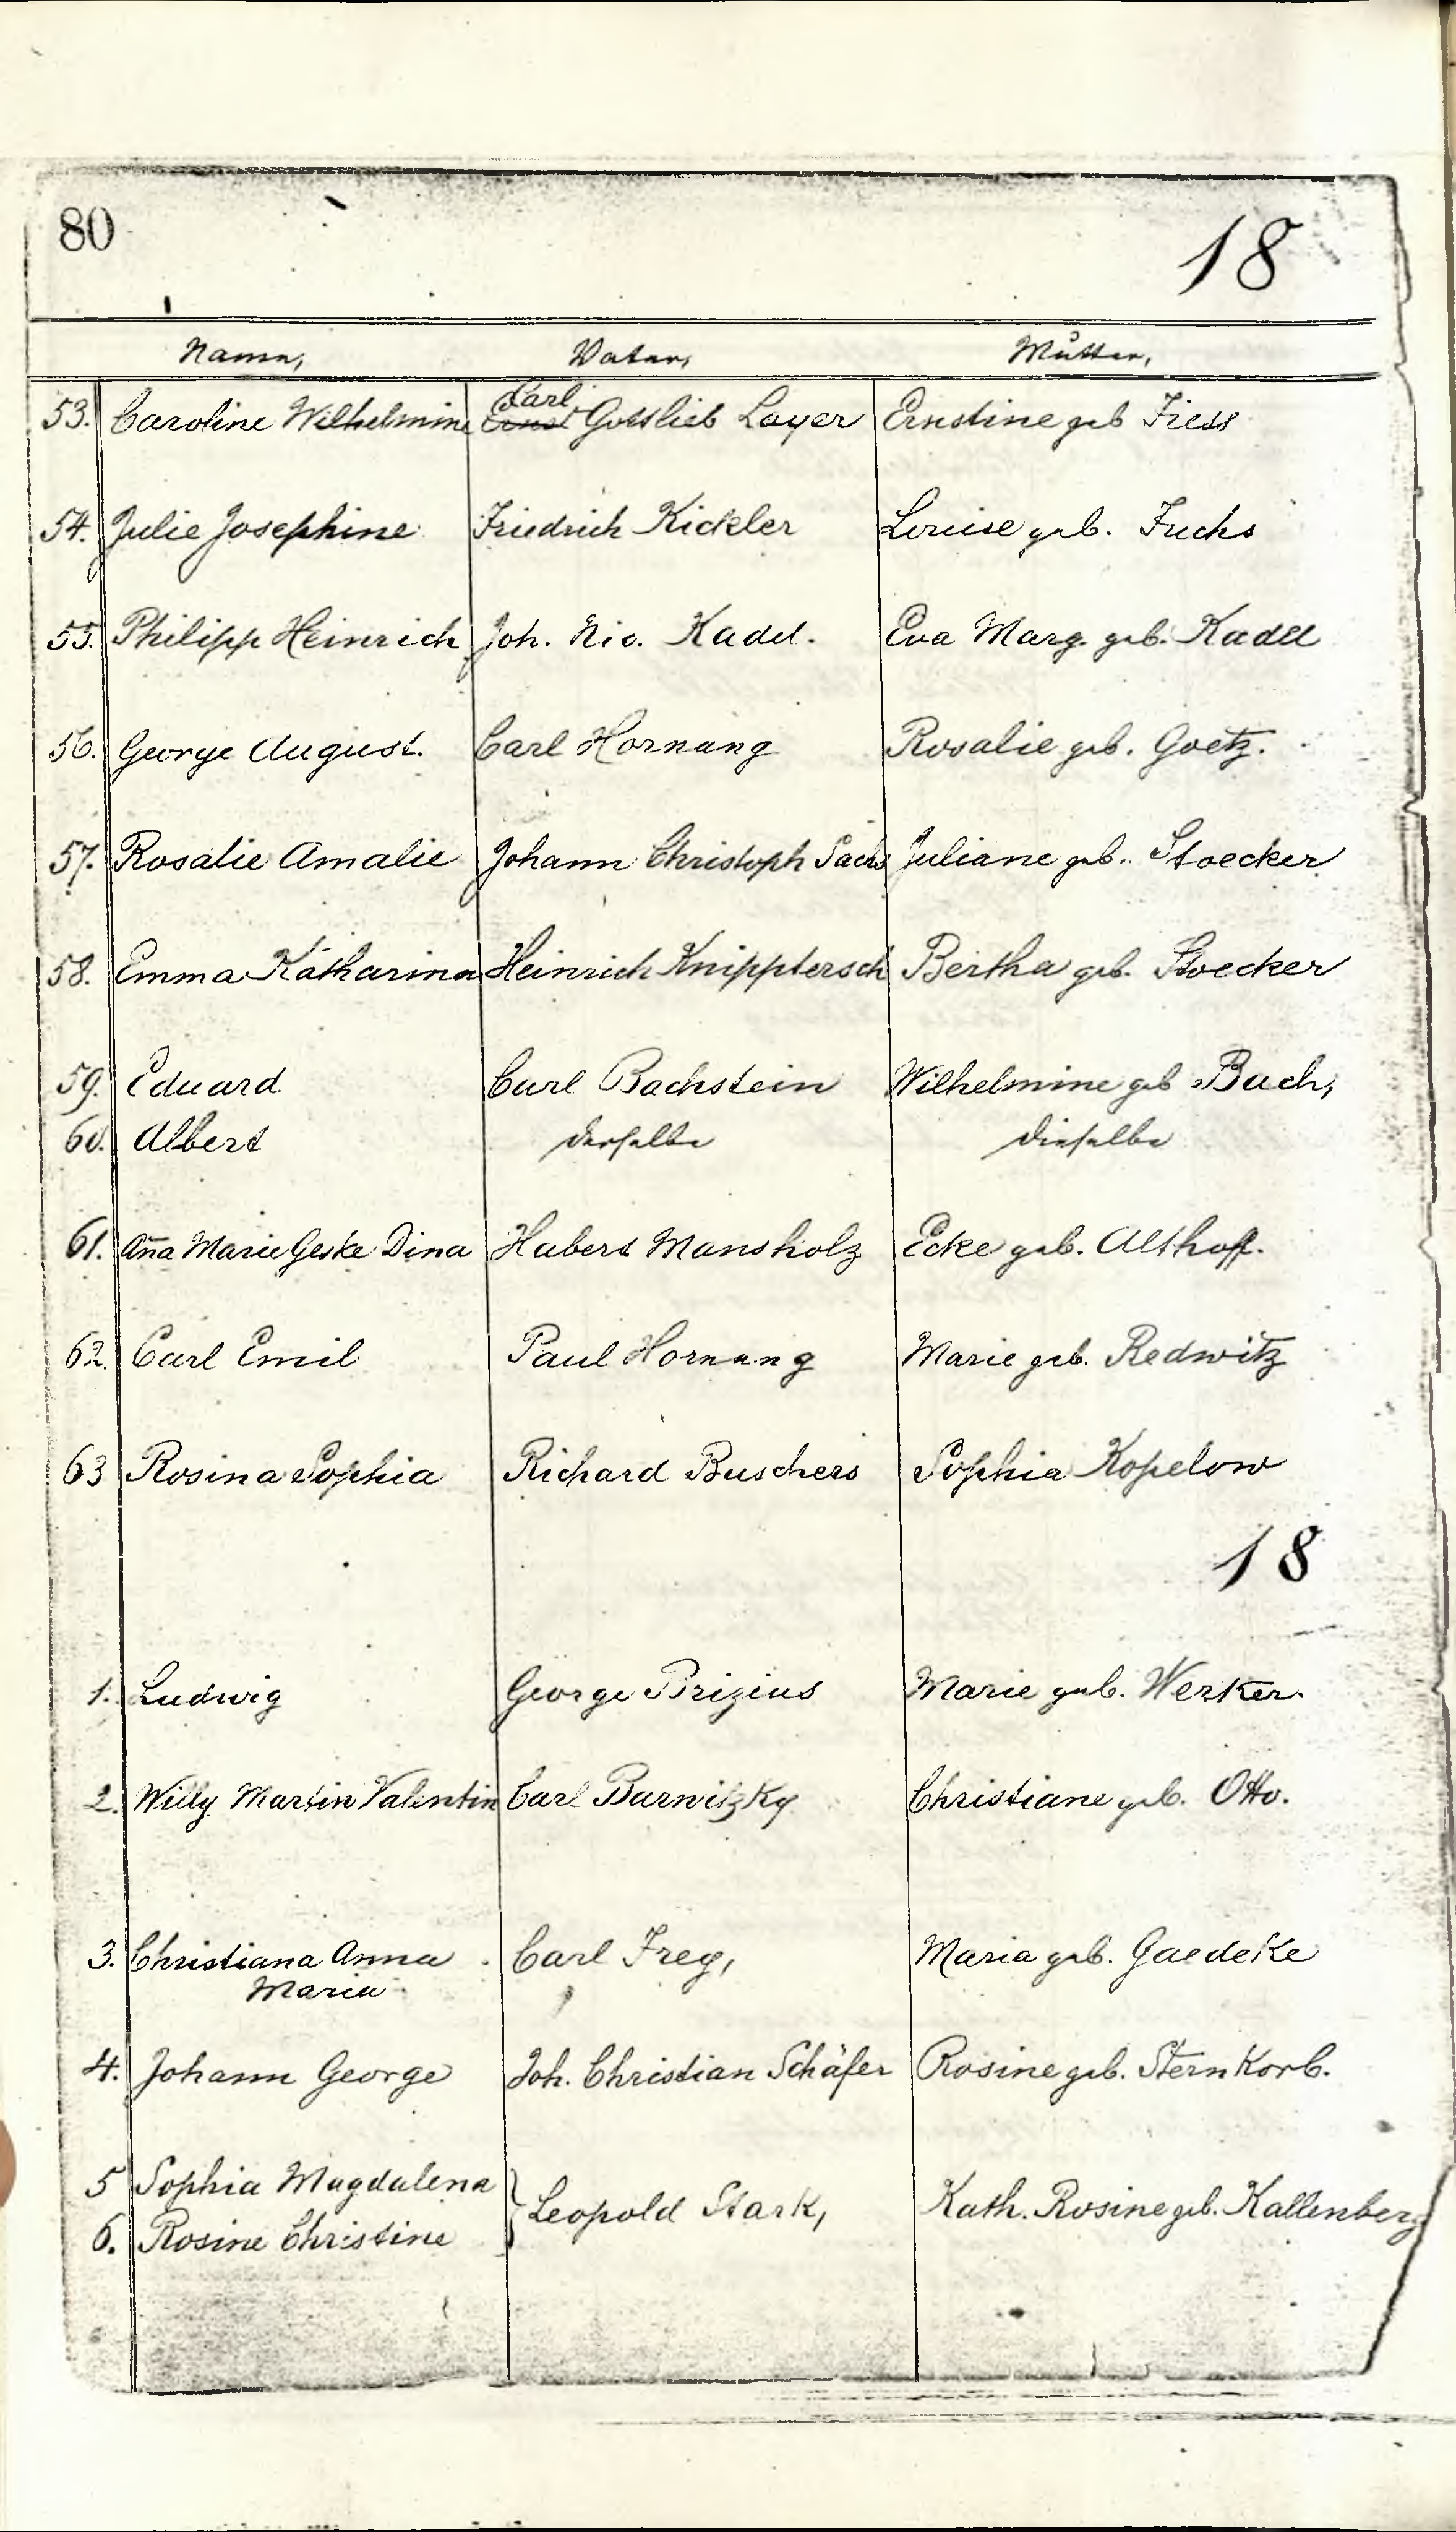 80
18
Name, Vater, Mutter,
53. Caroline Wilhelmine Carl Ernst Gottlieb Layer Ernstine geb Fiess
54. Julie Josephine Friedrich Kickler Louise geb. Fuchs
55. Philipp Heinrich Joh. Nic. Kadel. Eva Marg. geb. Kadel
56. George August. Carl Hornung Rosalie geb. Goetz.
57. Rosalie Amalie Johann Christoph Sachs Juliane geb. Stoecker
58. Emma Katharina Heinrich Knipptersch Bertha geb. Stoecker
59. Eduard Carl Bachstein Wilhelmine geb Bach,
60. Albert derselbe dieselbe
61. Ana Marie Geske Dina Hubert Mansholz Ecke geb. Althoff.
62. Carl Emil Paul Hornung Marie geb. Redwitz
63 Rosina Sophia Richard Buschers Sophia Kopelow
18
1. Ludwig George Brizius Marie geb. Werker.
2. Willy Martin Valentin Carl Barwitzky Christiane geb. Otto.
3. Christiana Anna Carl Frey, Maria geb. Gaedeke
Maria
4. Johann George Joh. Christian Schäfer Rosine geb. Sternkorb.
5 Sophia Magdalena
Leopold Stark, Kath. Rosine geb. Kallenberg
6. Rosine Christine